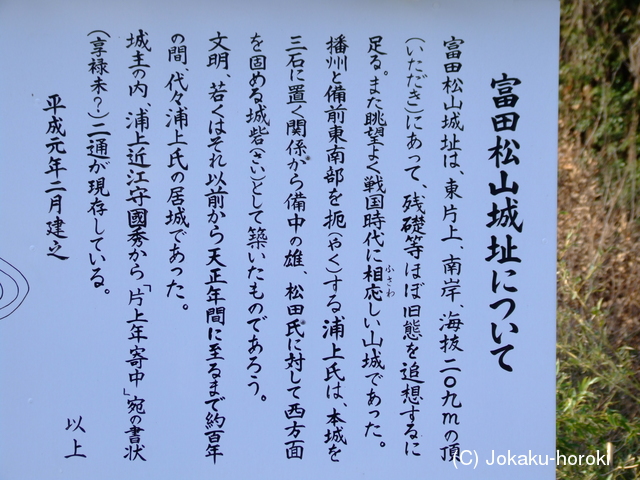 富田松山城址について
富田松山城址は、東片上、南岸、海抜二〇九mの頂
(いただき)にあって、残礎等ほぼ旧態を追想するに
足る。また眺望よく戦国時代に相応しい山城であった。
ふさわ
播州と備前東南部を扼(やく)する浦上氏は、本城を
三石に置く関係から備中の雄、松田氏に対して西方面
を固める城砦(さい)として築いたものであろう。
文明、若くはそれ以前から天正年間に至るまで約百年
の間、代々浦上氏の居城であった。
城主の内、浦上近江守國秀から「片上年寄中」宛の書状
(享禄末?)二通が現存している。
平成元年二月建之
以上
(C) Jokaku-horoki